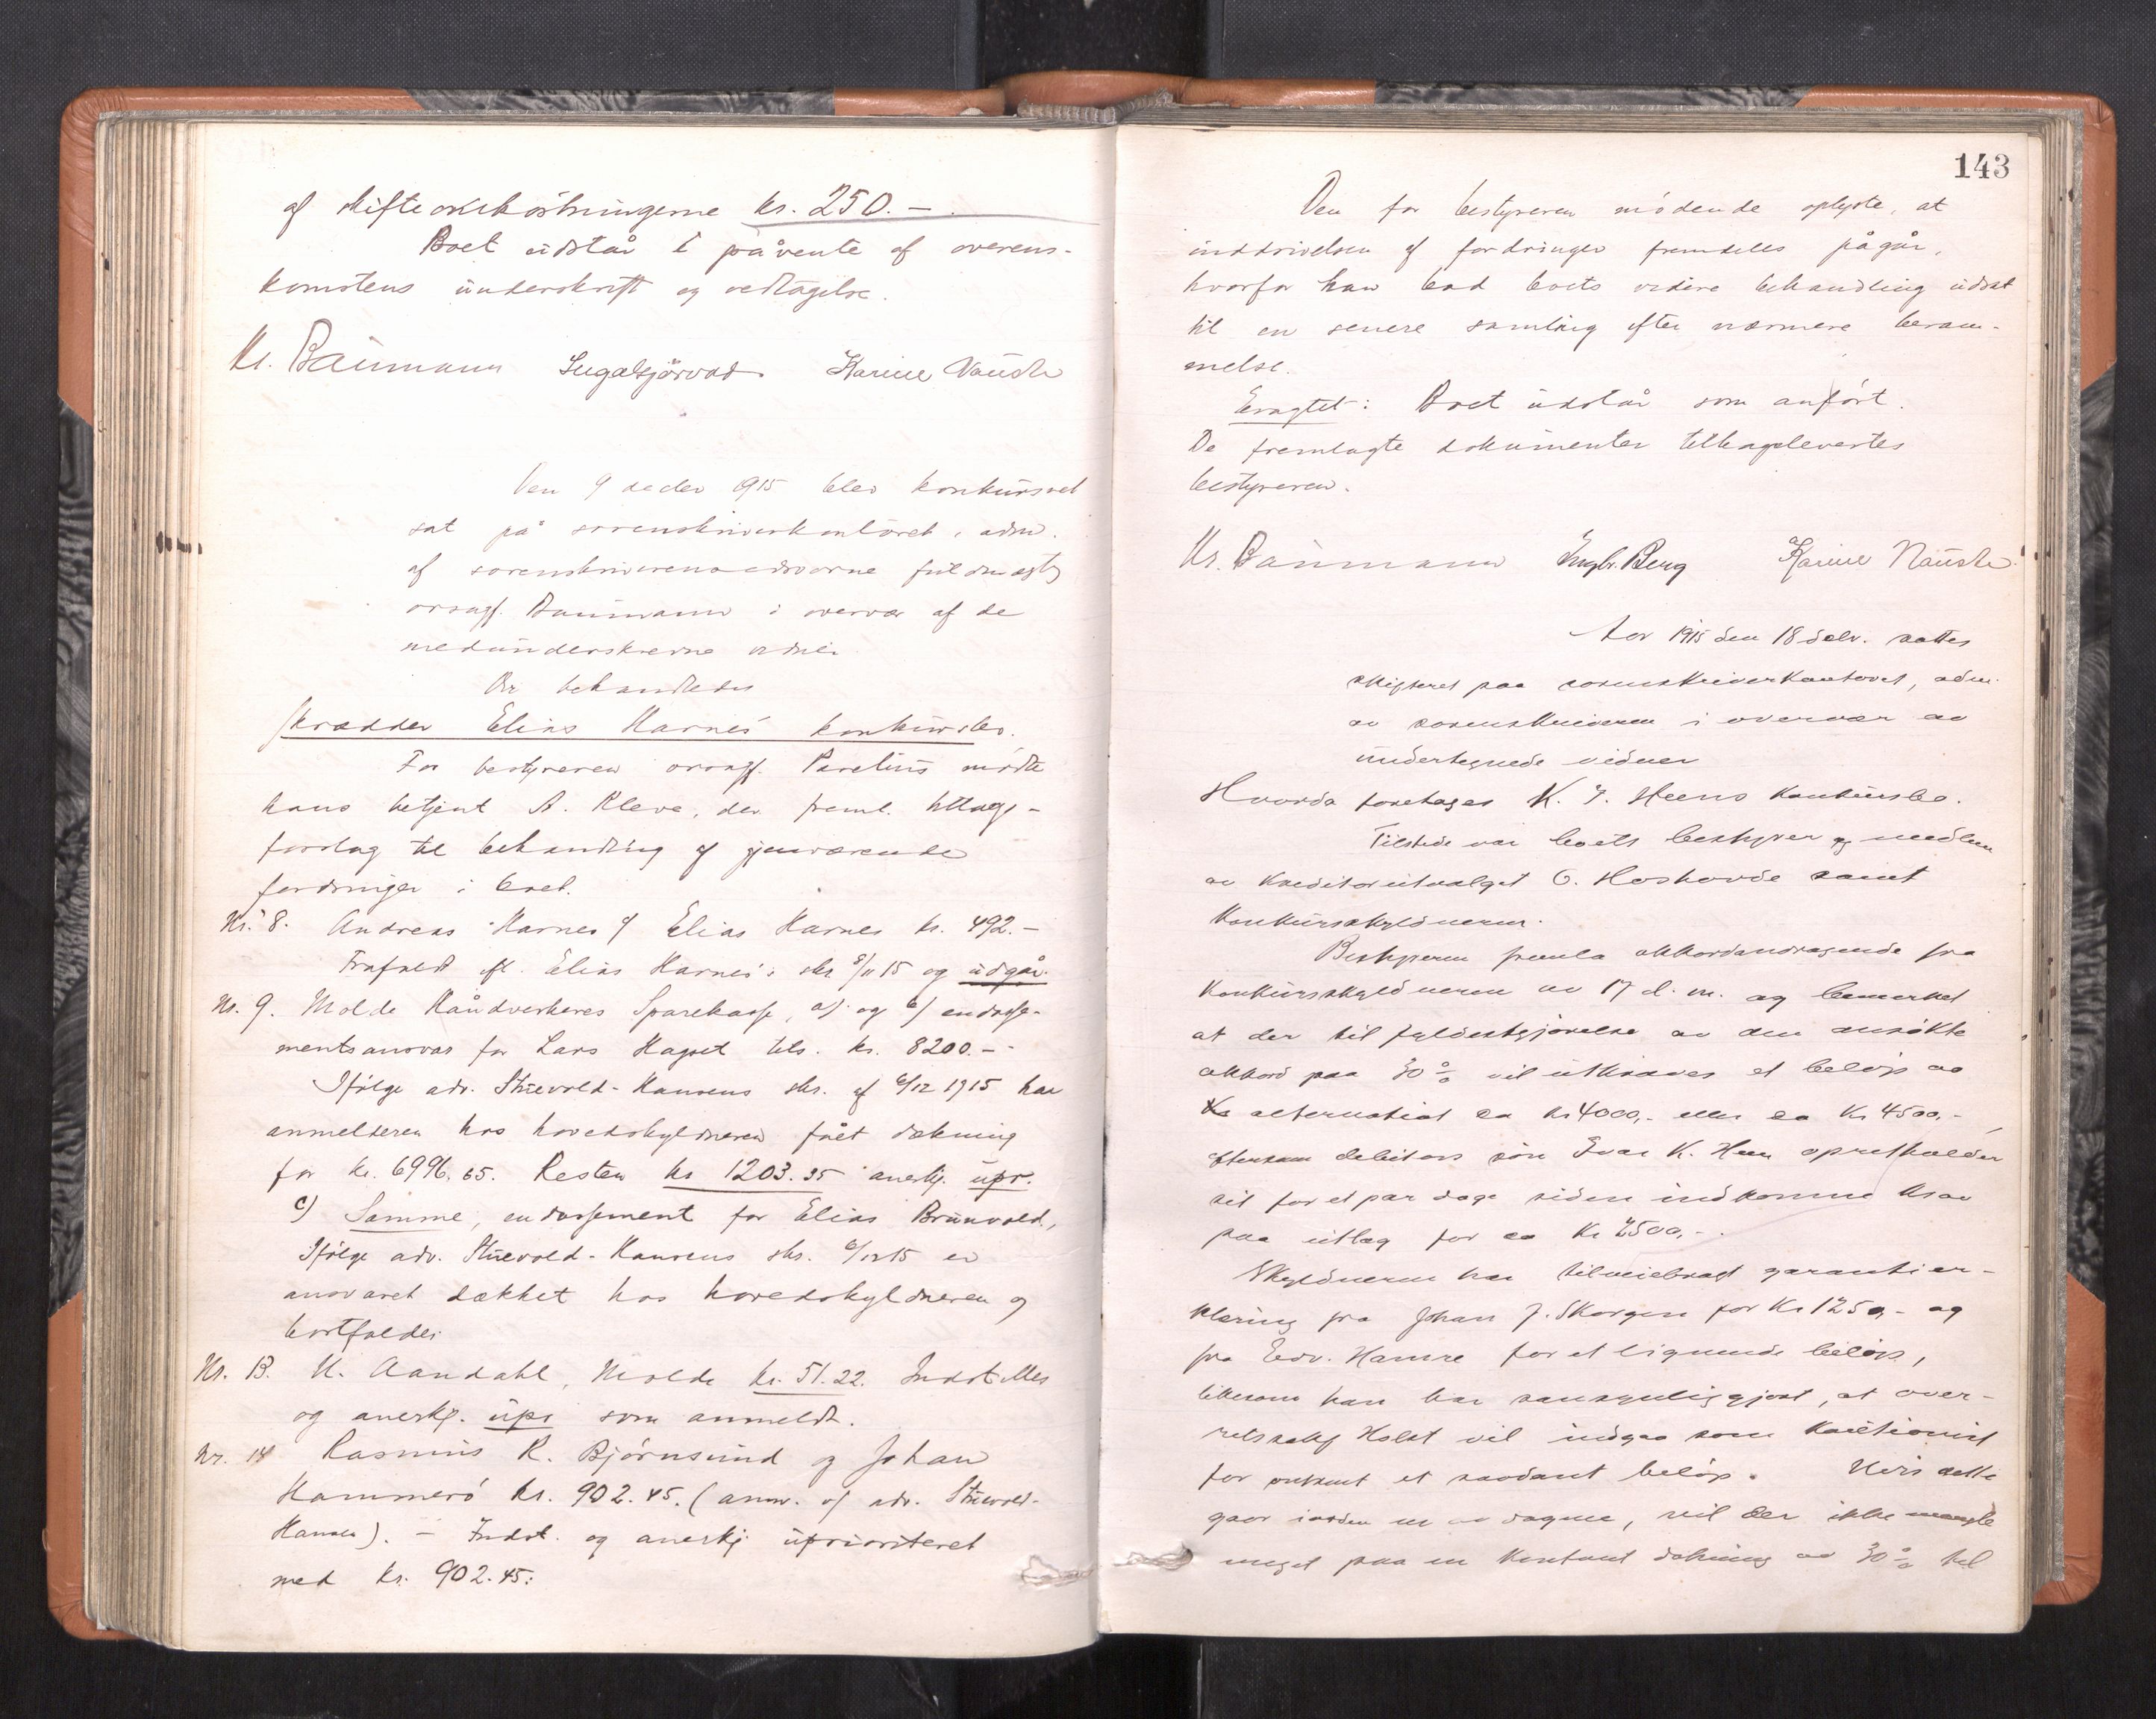 af skifteomkostningerne kr. 250.-.
Boet udstår i påvente af overens-
komstens underskrift og vedtagelse.
Kr. Baumann Karine Nauste
Den 9 decbr 1915 blev konkursret
sat på sorenskriverkontoret, adm.
af sorenskriverens edsvorne fuldmægtig
orsagf. Baumann i overvær af de
medunderskrevne vidner
Der behandledes
skrædder Elias Harnes konkursbo.
For bestyreren orsagf. Parelius mødte
hans betjent A. Kleve, der freml.
forslag til behandling af gjenværende
fordringer i boet.
Nr. 8. Andreas Harnes c/ Elias Harnes kr. 492.-
Frafaldt efl. Elias Harnes's skr 8/11 15 og udgår.
Nr. 9. Molde Håndverkeres Sparekasse, a) og b) endosse-
mentsansvar for Lars Hagset tils. kr. 8200.-
Ifølge adv. Stuevold-Hansens skr. af 6/12 1915 har
anmelderen hos hovedskyldneren fået dækning
for kr. 6996.65. Resten kr 1203.35 anerkj. upr.
c) Samme, endossement for Elias Brunvold,
Ifølge adv. Stuevold-Hansens skr. 6/12 15 er
ansvaret dækket hos hovedskyldneren og
bortfalder
Nr. 13. N. Aandahl, Molde kr. 51.22. Indstilles
og anerkj. upr som anmeldt.
Nr. 14 Rasmus R. Bjørnsund og Johan
Hammerø kr. 902.45. (anm. v/ adv. Stuevold-
Hansen). - Indst. og anerkj uprioriteret
med kr. 902.45.
143
Den for bestyreren mødende oplyste, at
inddrivelsen af fordringer fremdeles pågår,
hvorfor han bad boets videre behandling udsat
til en senere samling efter nærmere beram-
melse.
Eragtet: Boet udstår som anført.
De fremlagte dokumenter tilbageleveredes
bestyreren.
Kr. Baumann Engbr. Berg Karine Nauste
Aar 1915 den 18 dcbr. sattes
skifteret paa sorenskriverkontoret, adm.
av sorenskriveren i overvær av
undertegnede vidner
Hvorda foretages K. J. Heens konkursbo.
Tilstede var boets bestyrer og medlem
av kreditorutvalget O. Hoshovde samt
konkursskyldneren.
Bestyreren fremla akkordandragende fra
konkursskyldneren av 17 d. m. og bemerket
at der til fyldestgjørelse av den ansøkte
akkord paa 30 % vil utkræves et beløp av
alternativt ca kr 4000,- eller ca Kr 4500,-,
eftersom debitors søn Ivar K. Heen opretholder
sit for et par dage siden indkomne krav
paa utlæg for ca Kr 2500,-.
Skyldneren har tilveiebragt garantier-
klæring fra Johan J. Skorgen for Kr 1250,- og
fra Edv. Hamre for et lignende beløp,
likesom han har sansynliggjort, at over-
retssakf Holst vil indgaa som kautionist
for omtrent et saadant beløp. Hvis dette
gaar iorden en av dagene, vil der ikke mangle
meget paa en kontant dækning av 30 % til